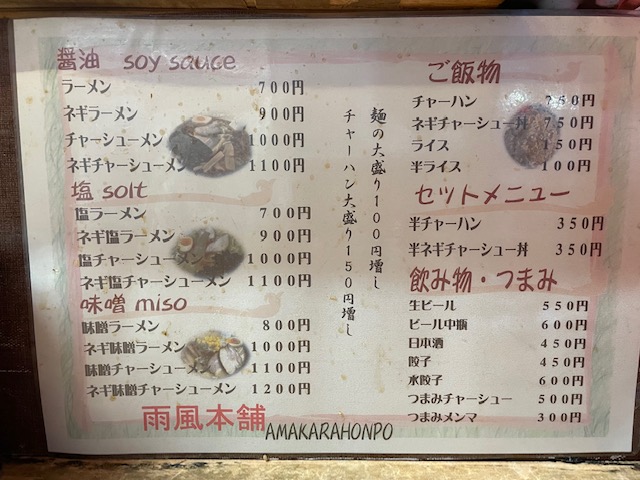 醤油 soy sauce
ラーメン 700円
ネギラーメン 900円
チャーシューメン 1000円
ネギチャーシューメン 1100円
塩 solt
塩ラーメン 700円
ネギ塩ラーメン 900円
塩チャーシューメン 1000円
ネギ塩チャーシューメン 1100円
味噌 miso
味噌ラーメン 800円
ネギ味噌ラーメン 1000円
味噌チャーシューメン 1100円
ネギ味噌チャーシューメン 1200円
麺の大盛り100円増し
チャーハン大盛り150円増し
ご飯物
チャーハン 750円
ネギチャーシュー丼 750円
ライス 150円
半ライス 100円
セットメニュー
半チャーハン 350円
半ネギチャーシュー丼 350円
飲み物・つまみ
生ビール 550円
ビール中瓶 600円
日本酒 450円
餃子 450円
水餃子 600円
つまみチャーシュー 500円
つまみメンマ 300円
雨風本舗 AMAKARAHONPO